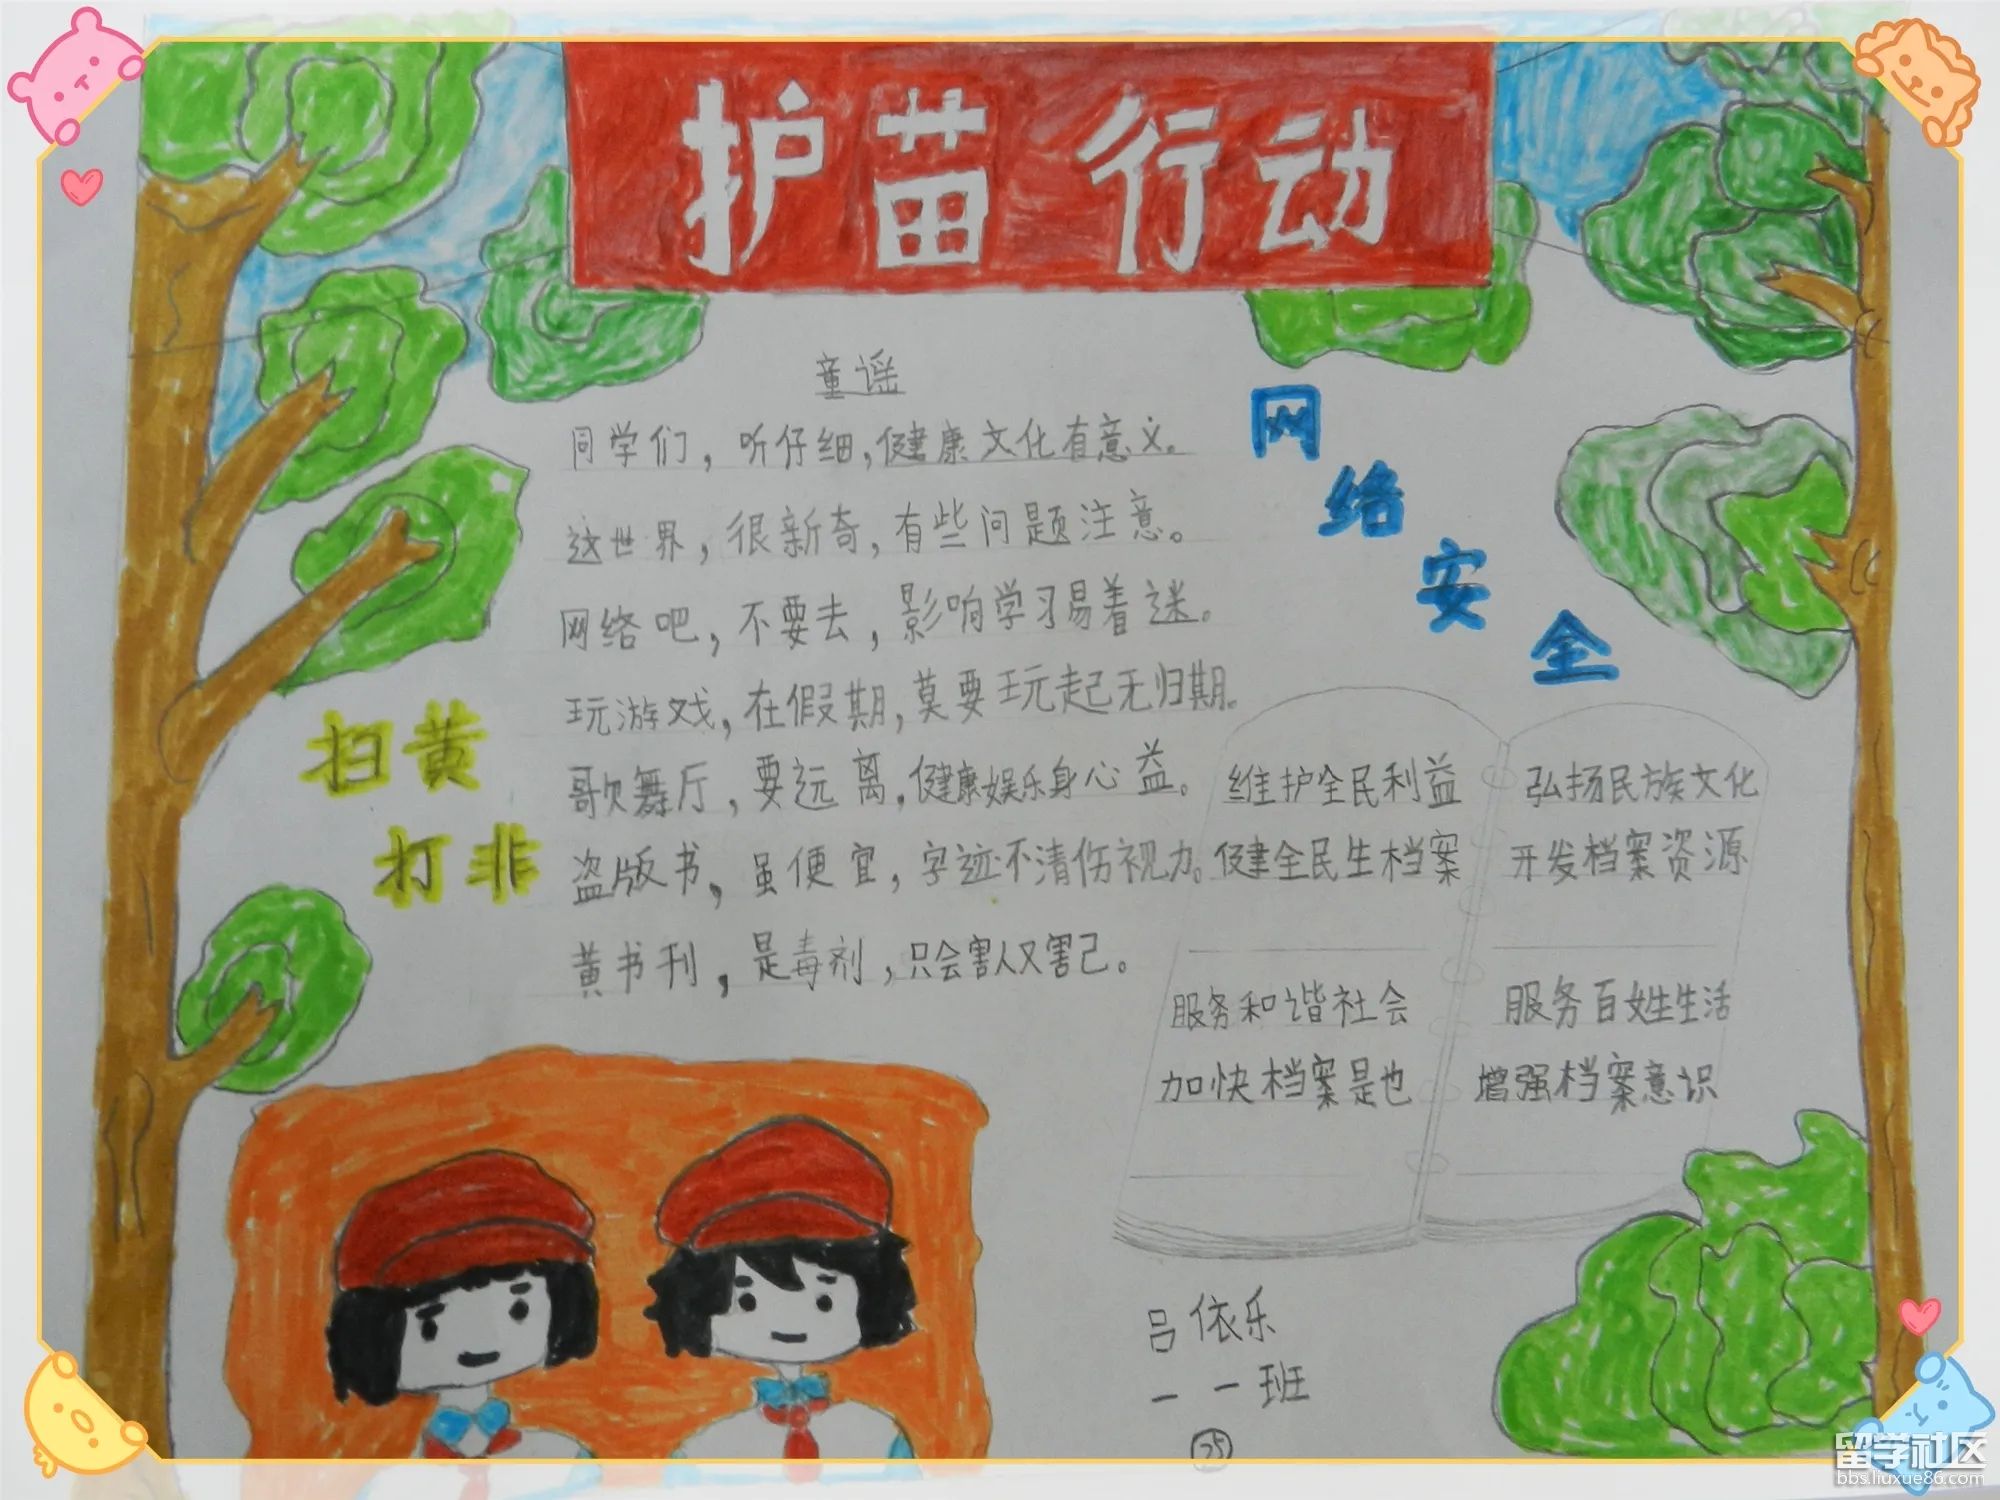 护苗行动
童谣
同学们，听仔细，健康文化有意义。
这世界，很新奇，有些问题注意。
网络吧，不要去，影响学习易着迷。
玩游戏，在假期，莫要玩起无归期。
歌舞厅，要远离，健康娱乐身心益。
盗版书，虽便宜，字迹不清伤视力。
黄书刊，是毒剂，只会害人又害己。
扫黄
打非
网络安全
维护全民利益
健全民生档案
服务和谐社会
加快档案是也
弘扬民族文化
开发档案资源
服务百姓生活
增强档案意识
吕依乐
一一班
25
留学社区
bbs.liuxue86.com